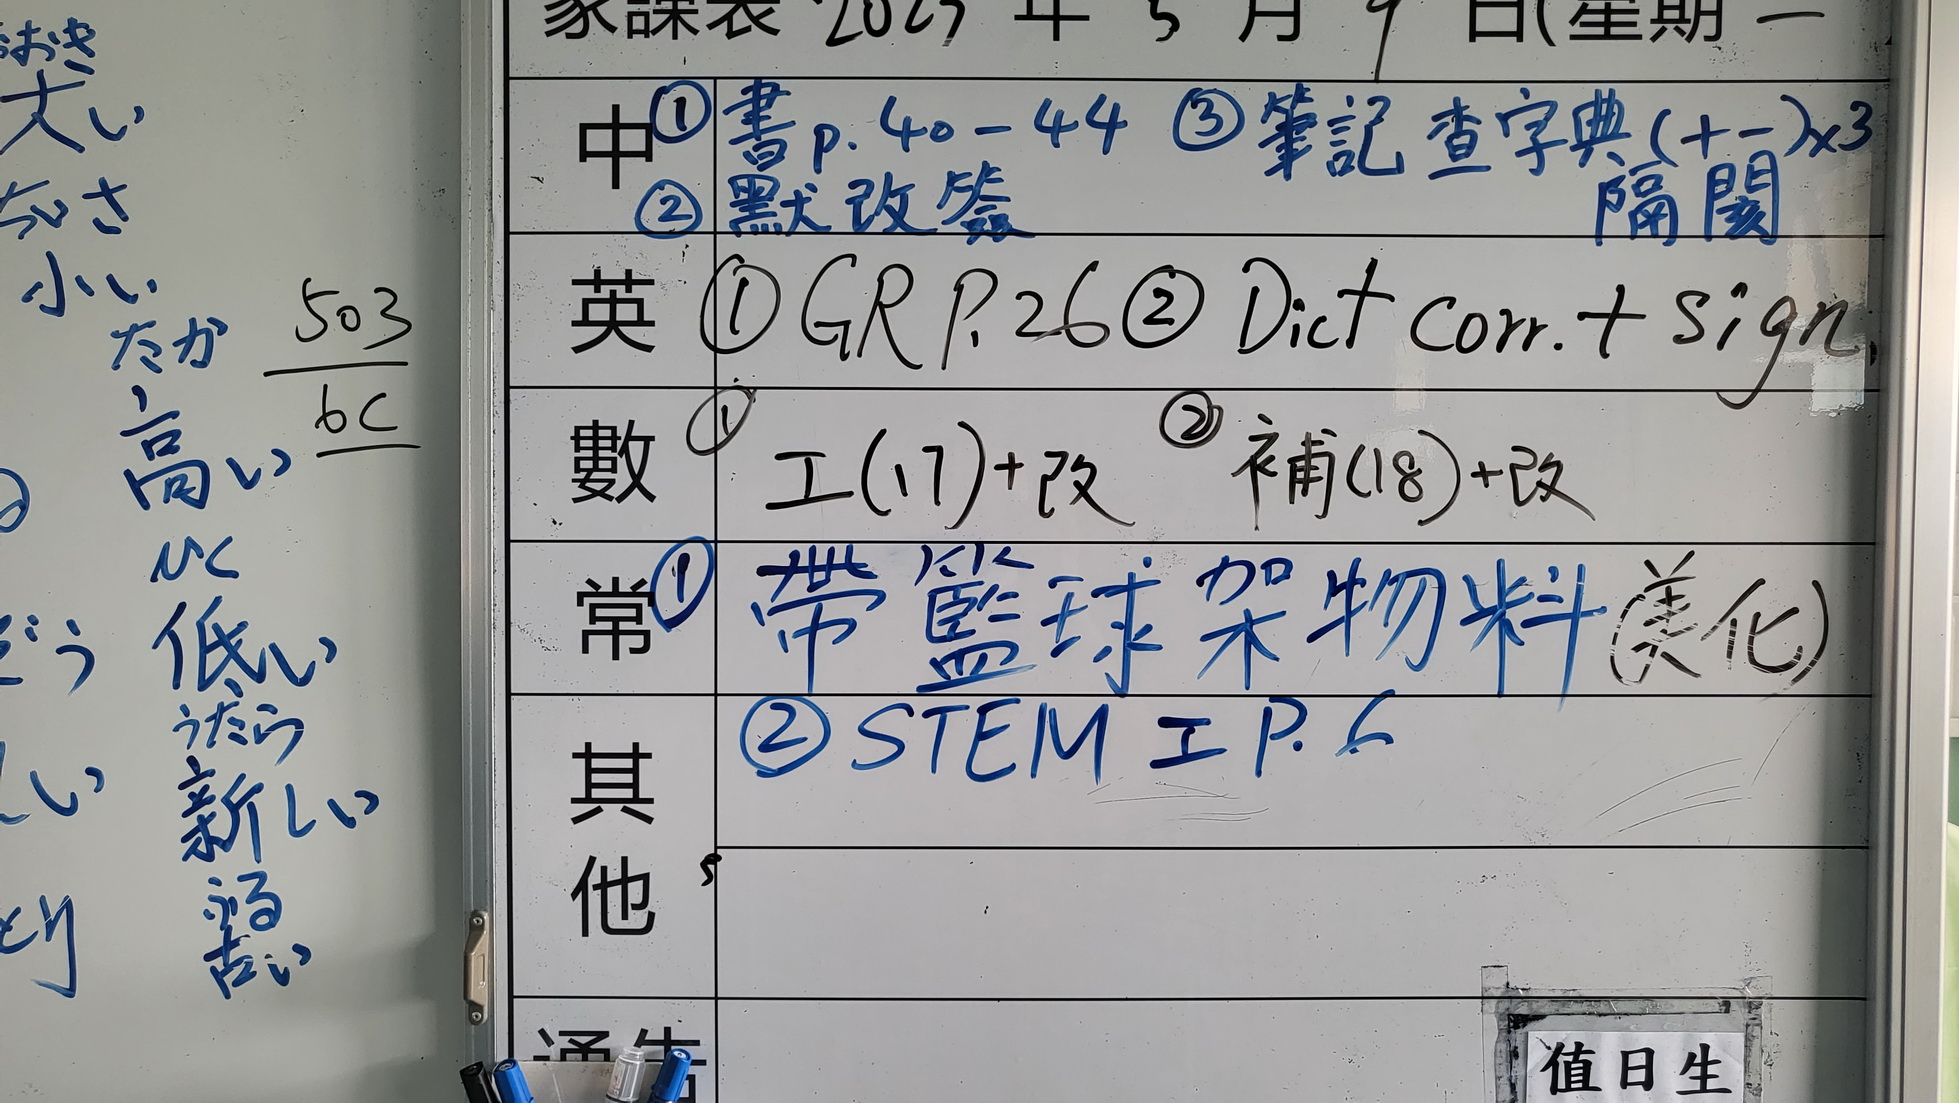 おおき
大い
ちいさ
小い
たか
高い
ひく
低い
うたら
新しい
ふる
古い
503
6C
家課表 2023 年 5 月 9 日(星期二
中 ① 書p.40-44 ③ 筆記 查字典(+-)x3
② 默改簽 隔開
英 ① GR P.26 ② Dict corr. + sign.
數 ① 工(17)+改 ② 補(18)+改
常 ① 帶籃球架物料(美化)
② STEM 工 P.6
其他
通告
值日生